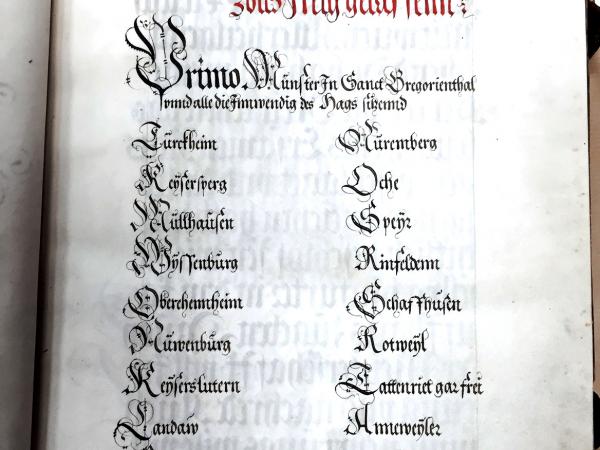 zolls Frey gelass seint:
Primo Münster In Sanct Gregorienthal
vnnd alle die Innwendig des Hags sitzennd
Türckheim
Keysersperg
Müllhausen
Wyssenburg
Oberehennheim
Nüwenburg
Keyserslutern
Landaw
Nüremberg
Oche
Speyr
Rinfeldenn
Schaffhusen
Rotweyl
Tattenriet gar frei
Anneweyler